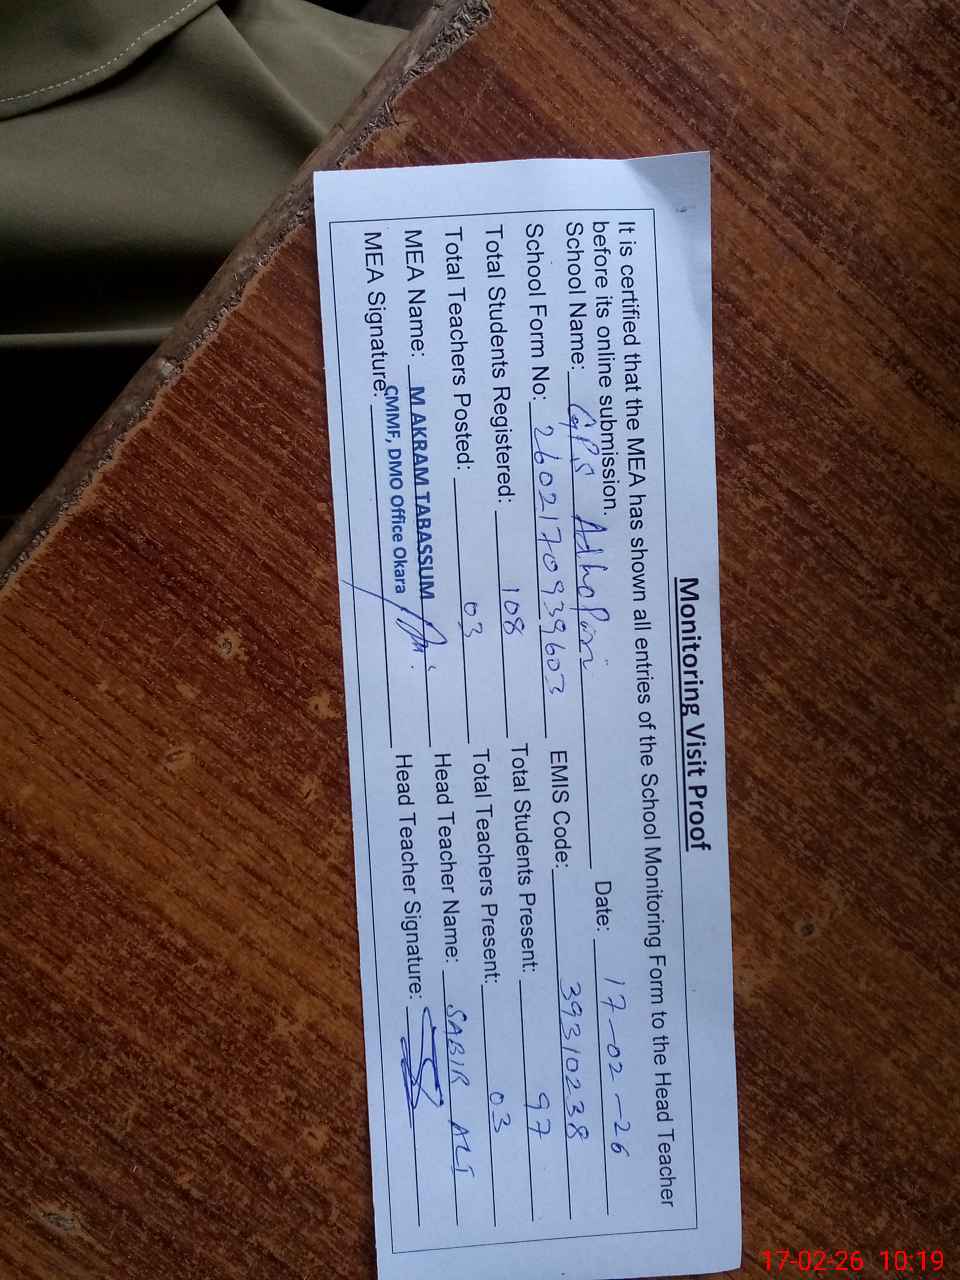 Monitoring Visit Proof
It is certified that the MEA has shown all entries of the School Monitoring Form to the Head Teacher
before its online submission.
Date: 17-02-26
School Name: GPS
School Form No: 2602170939603 EMIS Code: 39310238
Total Students Registered: 108 Total Students Present: 97
Total Teachers Posted: 03 Total Teachers Present: 03
MEA Name: M AKRAM TABASSUM Head Teacher Name: SABIR ALI
CMMF, DMO Office Okara
MEA Signature: Head Teacher Signature:
17-02-26 10:19